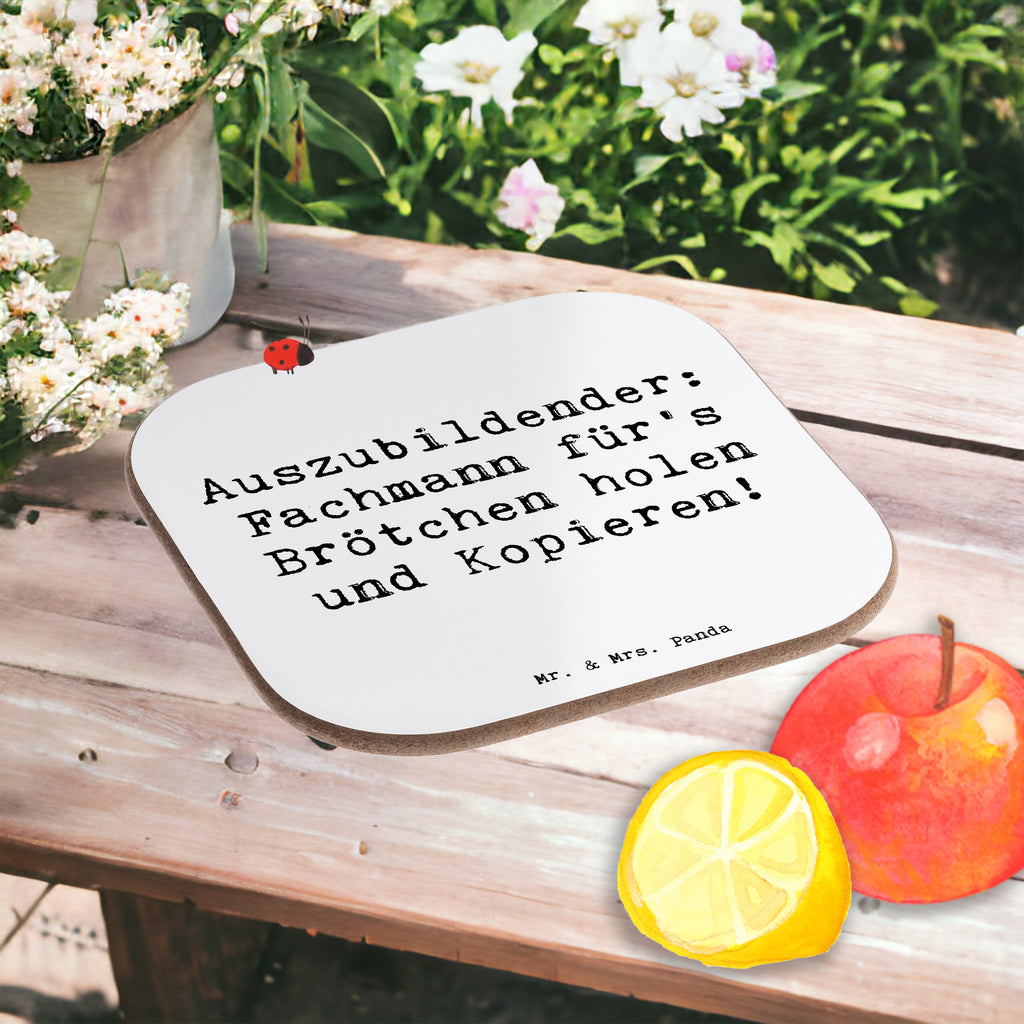 Auszubildender:
Fachmann für's
Brötchen holen
und Kopieren!
Mr. & Mrs. Panda